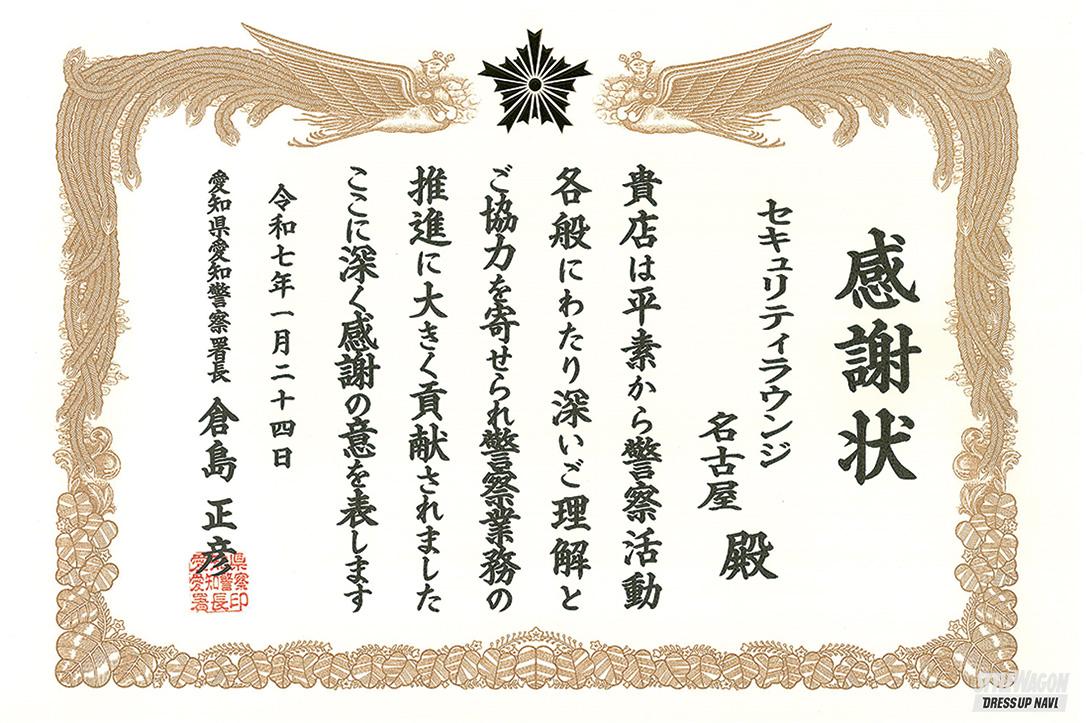 感謝状
セキュリティラウンジ
名古屋 殿
貴店は平素から警察活動
各般にわたり深いご理解と
ご協力を寄せられ警察業務の
推進に大きく貢献されました
ここに深く感謝の意を表します
令和七年一月二十四日
愛知県愛知警察署長 倉島 正彦
STYLE WAGON
DRESS UP NAVI